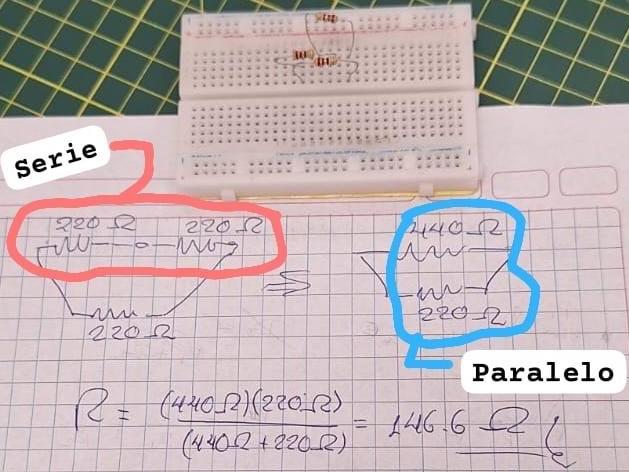 Serie
220 Ω 220 Ω
220 Ω
440 Ω
220 Ω
Paralelo
R = (440 Ω)(220 Ω) / (440 Ω + 220 Ω) = 146.6 Ω